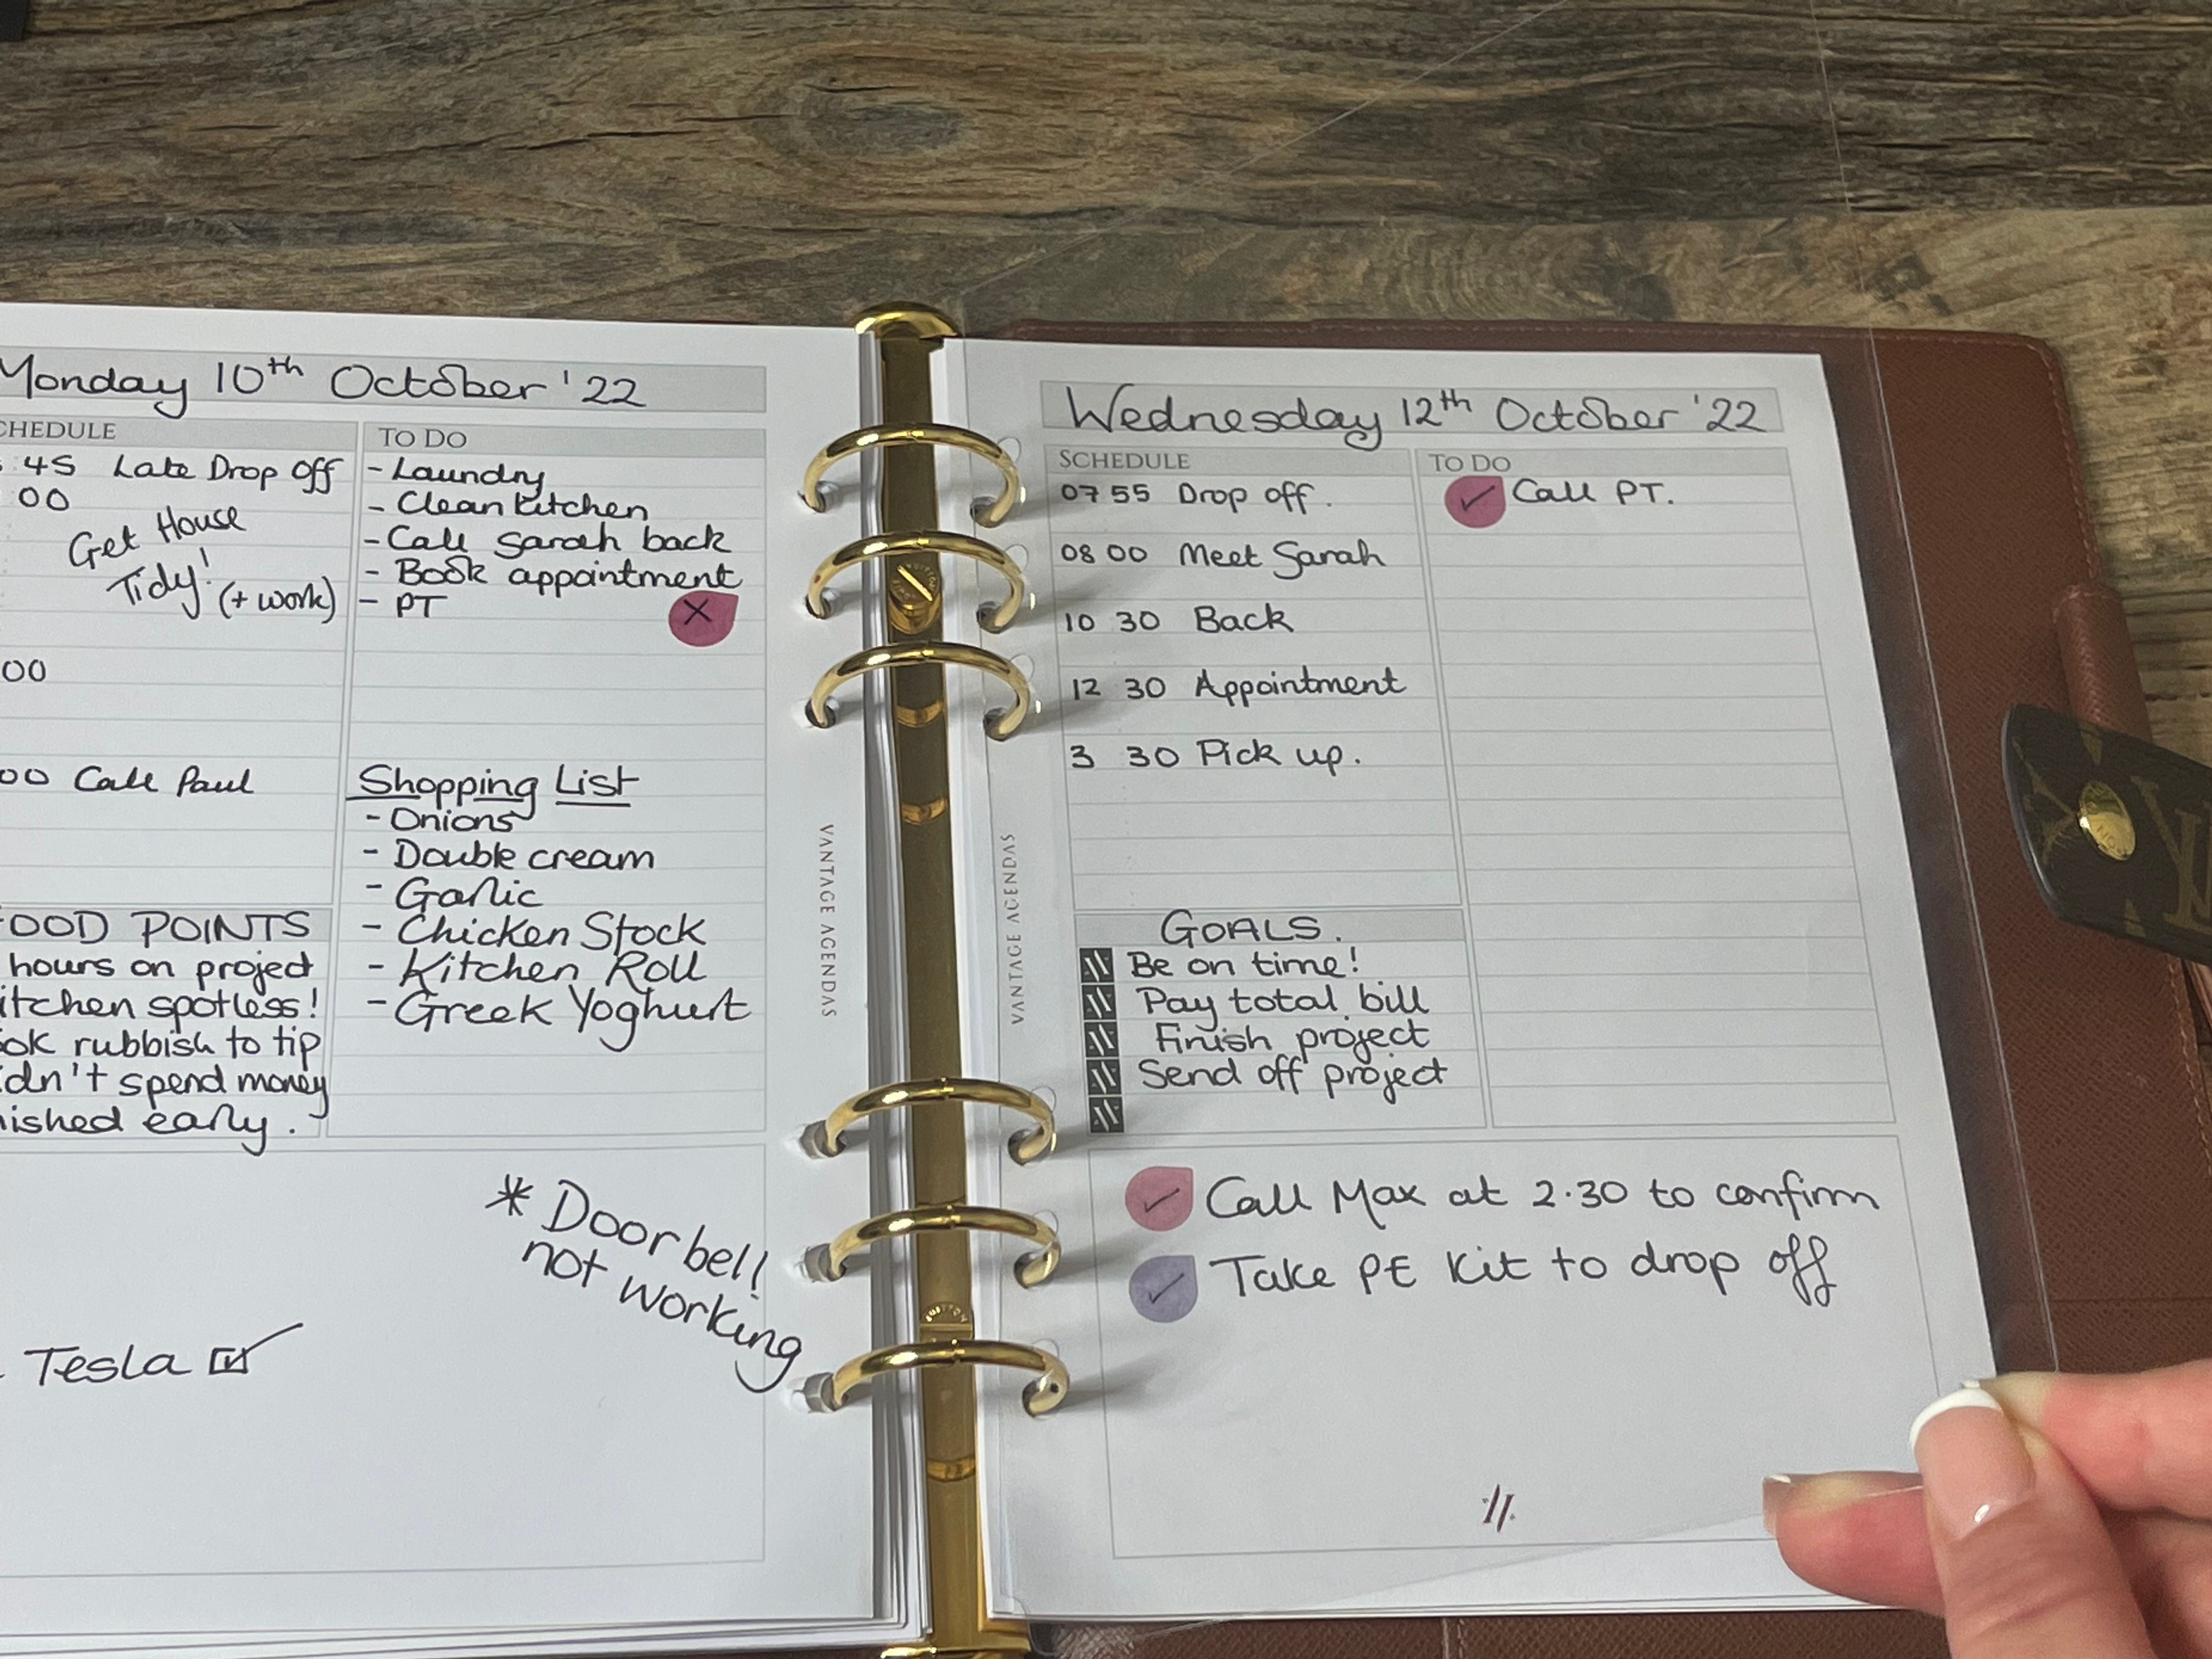 Monday 10th October '22
CHEDULE
45 Late Drop off
00
Get House
Tidy! (+ work)
00
00 Call Paul
OOD POINTS
hours on project
itchen spotless!
ok rubbish to tip
dn't spend money
ished early.
TO DO
- Laundry
- Clean kitchen
- Call Sarah back
- Book appointment
- PT
Shopping List
- Onions
- Double cream
- Garlic
- Chicken Stock
- Kitchen Roll
- Greek Yoghurt
* Doorbell
not working
Tesla
VANTAGE AGENDAS
VANTAGE AGENDAS
Wednesday 12th October '22
SCHEDULE
07 55 Drop off.
08 00 Meet Sarah
10 30 Back
12 30 Appointment
3 30 Pick up.
TO DO
Call PT.
GOALS.
Be on time!
Pay total bill
Finish project
Send off project
Call Max at 2.30 to confirm
Take PE Kit to drop off